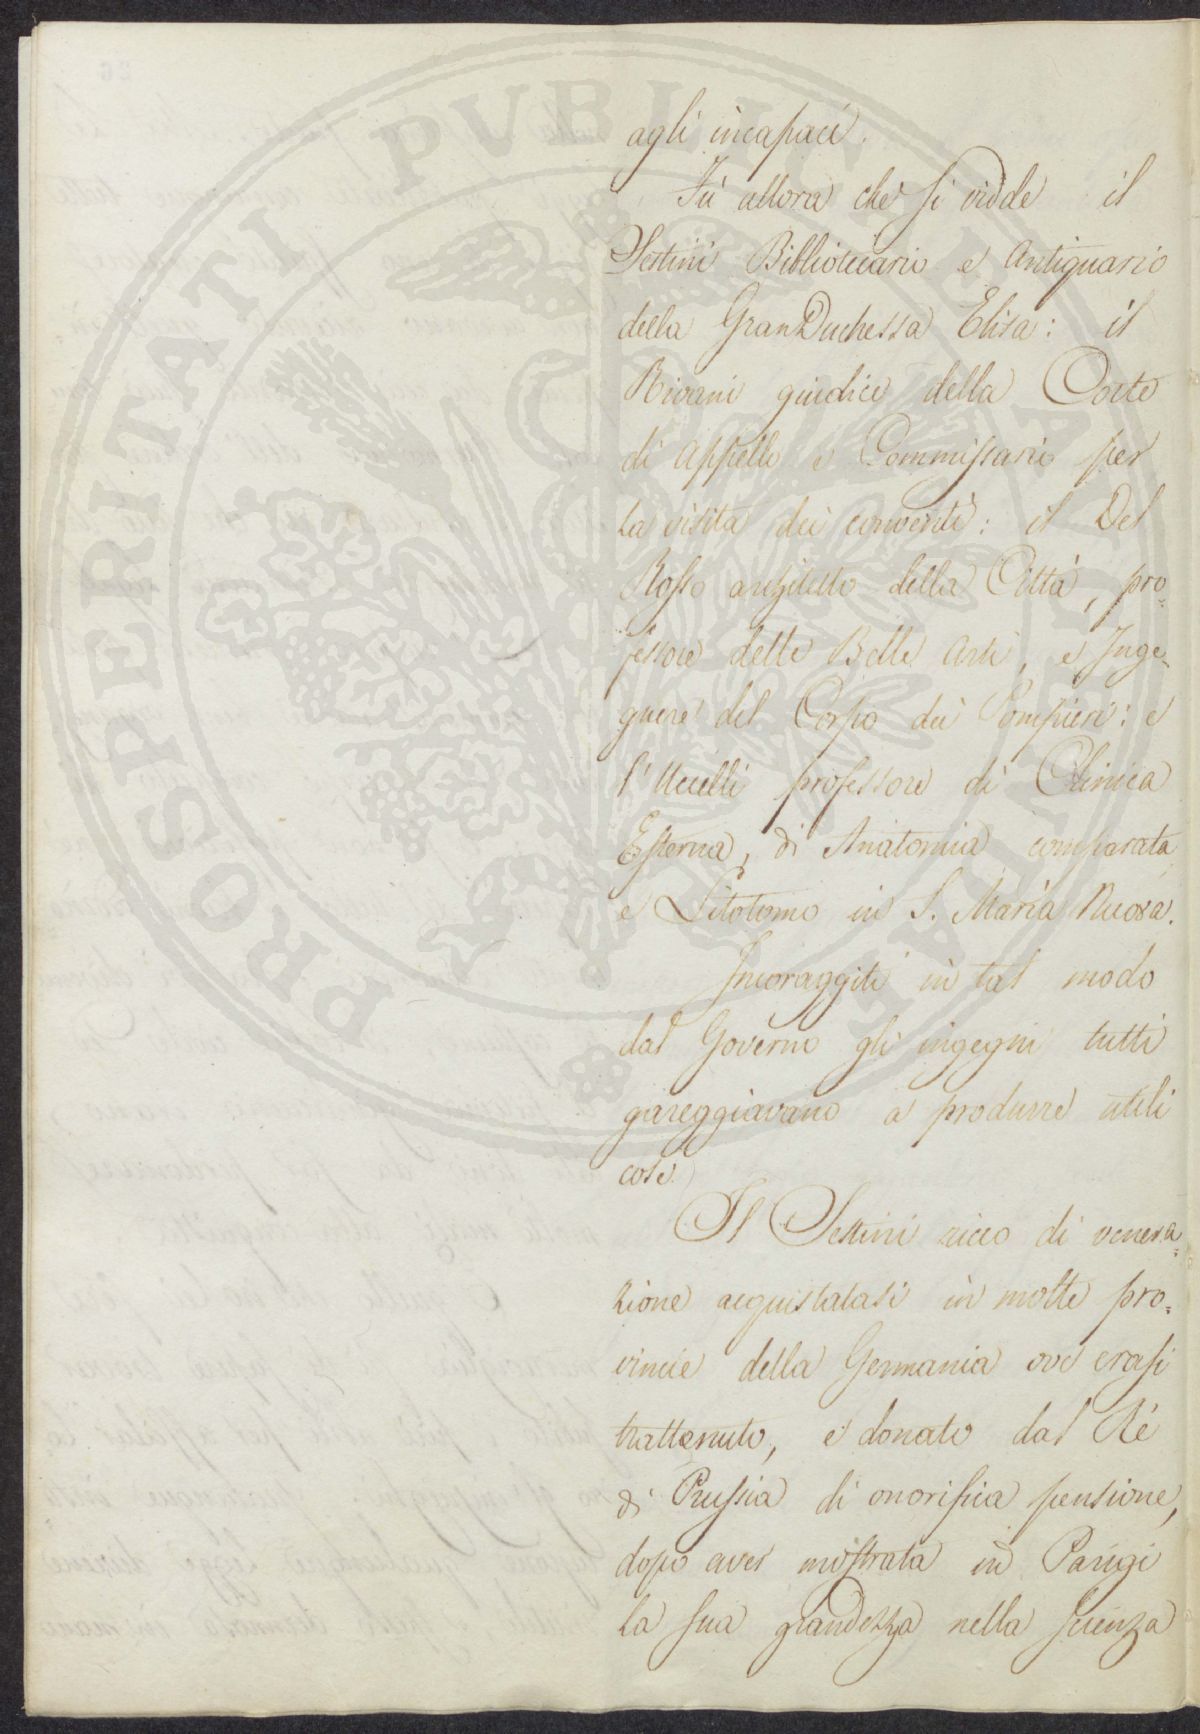 agli incapaci.
Fù allora che si vidde il
Sestini Bibliotecario e Antiquario
della GranDuchessa Elisa: il
Rivani giudice della Corte
di Appello e Commissario per
la visita dei conventi: il Del
Rosso architetto della Città, pro=
fessore delle Belle Arti, e Inge=
gnere del Corpo dei Pompieri: e
l'Uccelli professore di Clinica
Esterna, di Anatomia comparata
e Litotomo in S. Maria Nuova.
Incoraggiti in tal modo
dal Governo gli ingegni tutti
gareggiavano a produrre utili
cose.
Il Sestini ricco di venera=
zione acquistatasi in molte pro=
vincie della Germania ove erasi
trattenuto, e donato dal Rè
di Prussia di onorifica pensione,
dopo aver mostrata in Parigi
la sua grandezza nella scienza
PROSPERITATI PUBLICAE AUGENDAE